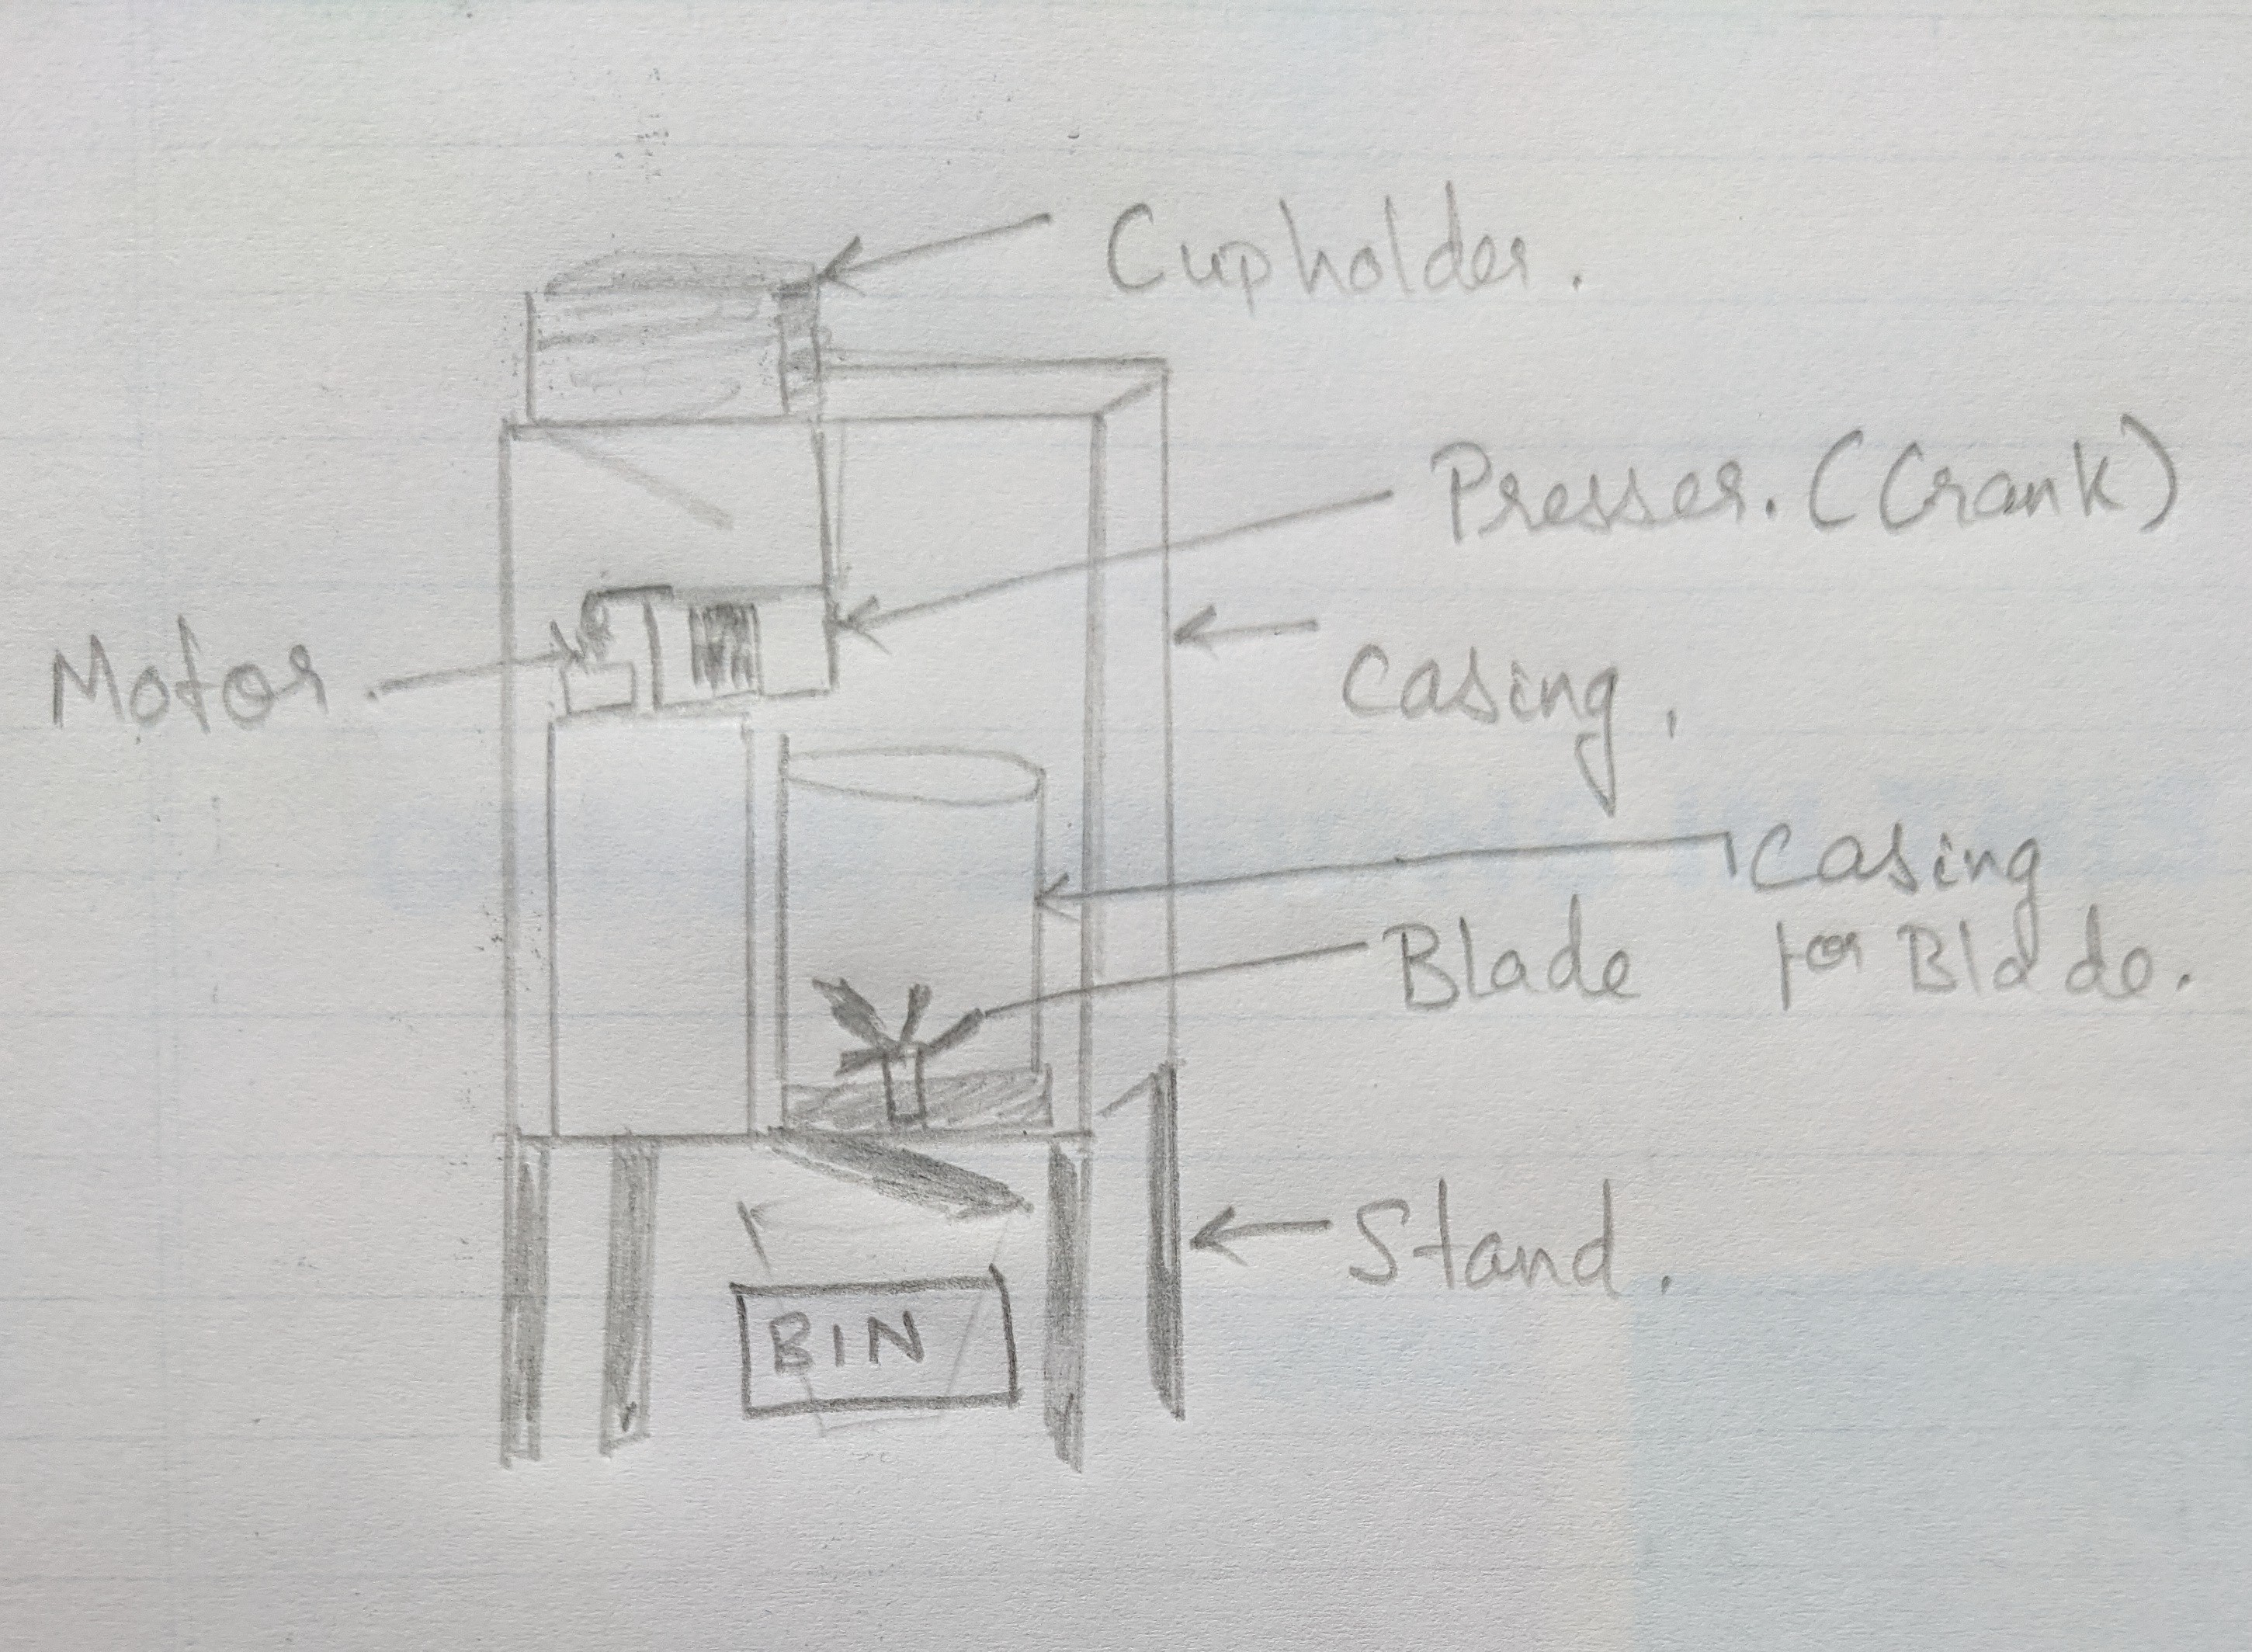 Cupholder.
Presser. (Crank)
Motor.
Casing.
Casing
for Blade.
Blade
Stand.
BIN